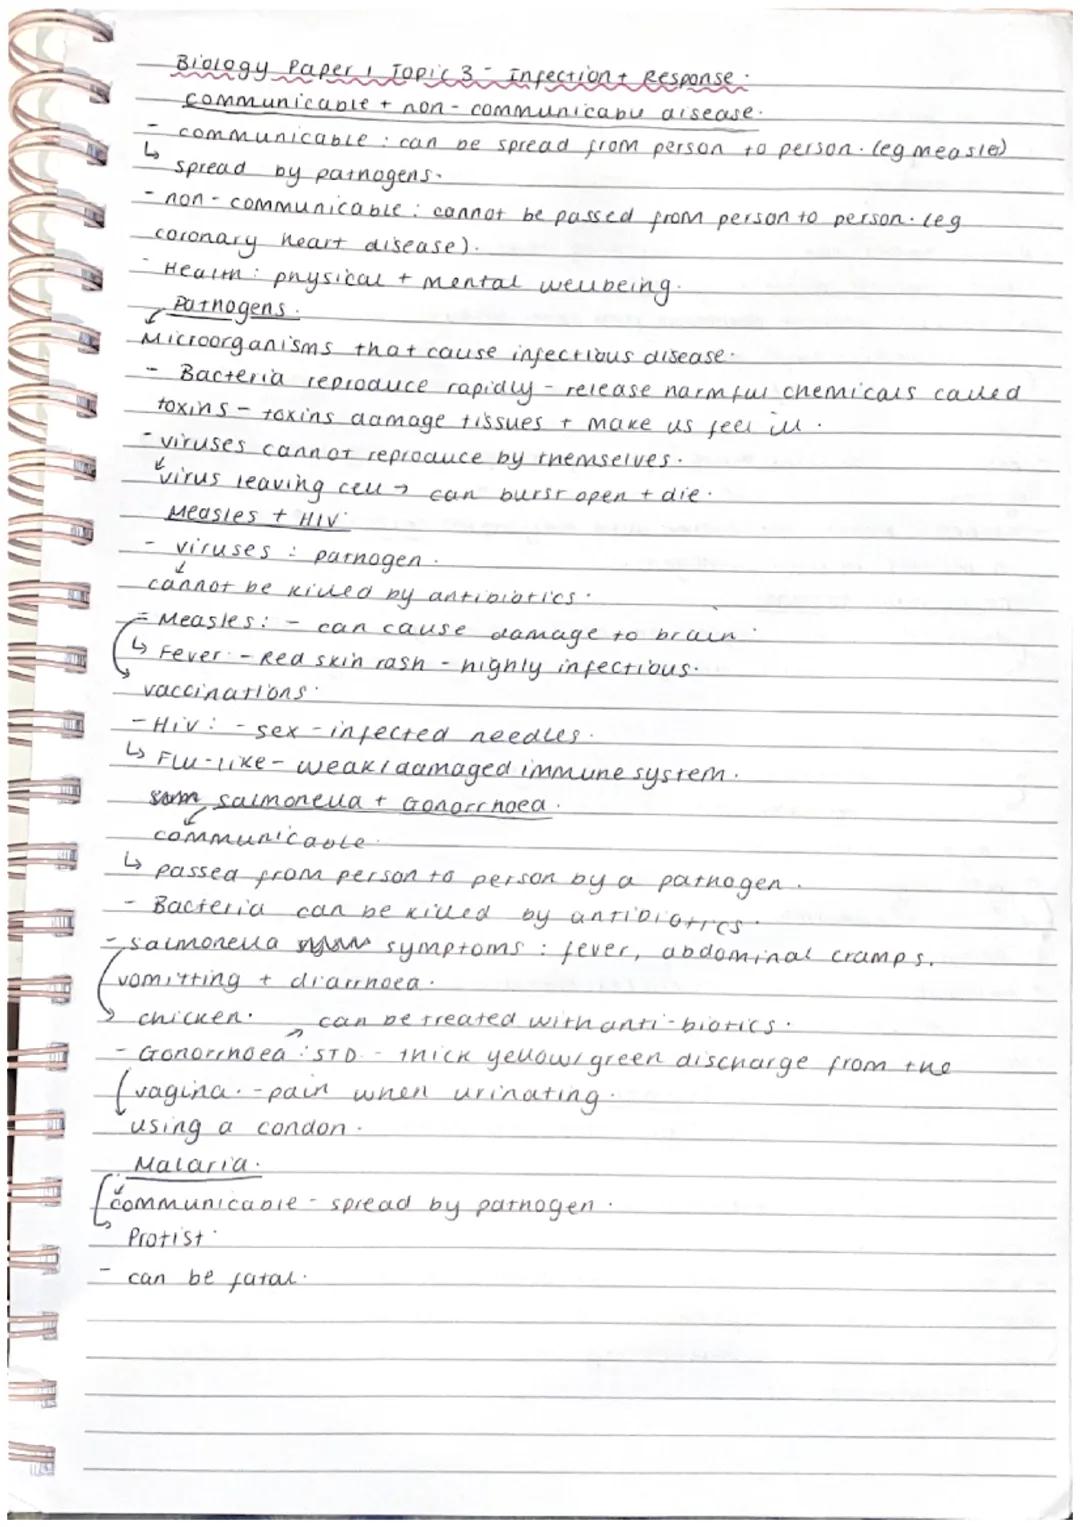 Biology Paper 1 Topic 3 - Infection + Response.
communicable + non-communicable disease.
- communicable : can be spread from person to person. (eg measle)
↳ spread by pathogens.
- non-communicable : cannot be passed from person to person. (eg
coronary heart disease).
- Health : physical + mental wellbeing.
Pathogens.
Microorganisms that cause infectious disease.
- Bacteria reproduce rapidly - release harmful chemicals called
toxins - toxins damage tissues + make us feel ill.
- viruses cannot reproduce by themselves.
virus leaving cell → can burst open + die.
Measles + HIV
- viruses : pathogen.
cannot be killed by antibiotics.
- Measles : - can cause damage to brain.
↳ Fever - Red skin rash - highly infectious.
vaccinations.
- HIV : - sex - infected needles.
↳ Flu-like - weak/damaged immune system.
salmonella + Gonorrhoea.
communicable.
↳ passed from person to person by a pathogen.
- Bacteria can be killed by antibiotics.
- salmonella symptoms : fever, abdominal cramps.
vomitting + diarrhoea.
chicken. can be treated with anti-biotics.
- Gonorrhoea : STD - thick yellow/green discharge from the
vagina. - pain when urinating.
using a condon.
Malaria.
communicable - spread by pathogen.
Protist.
- can be fatal.